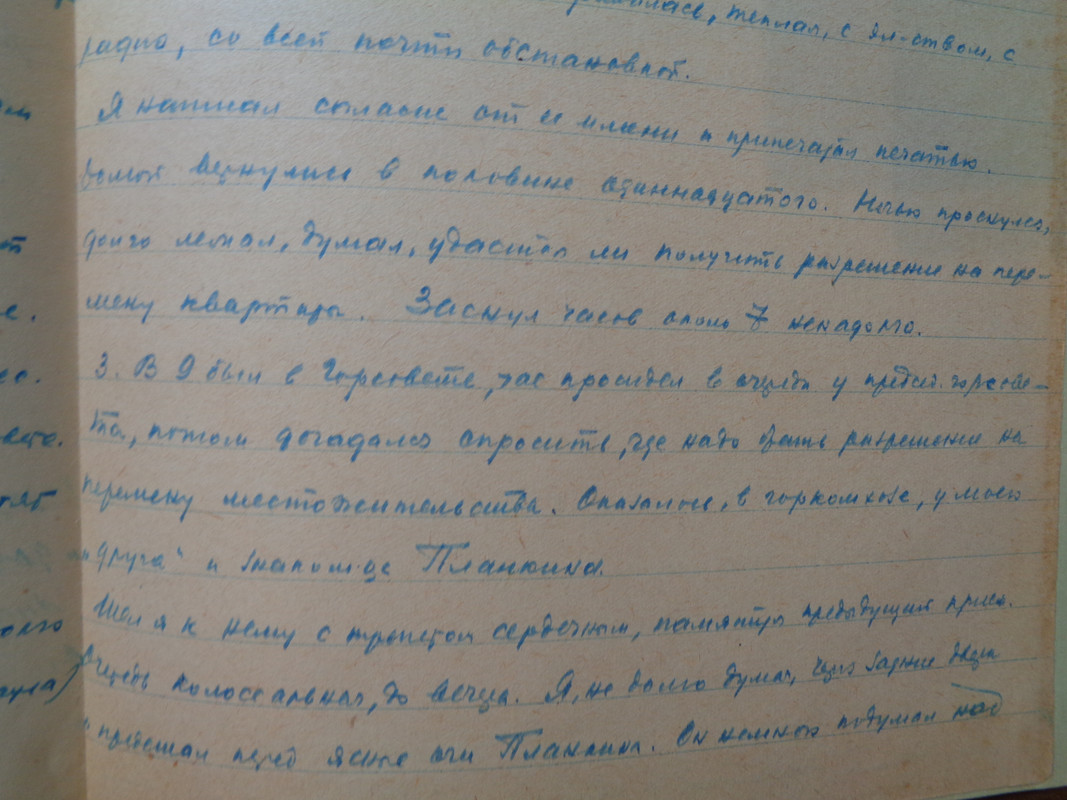 теплая, с эл-ством, с
радио, со всей почти обстановкой.
Я написал согласие от ее имени и припечатал печатью.
Домой вернулись в половине одиннадцатого. Ночью проснулся,
долго лежал, думал, удастся ли получить разрешение на пере-
мену квартиры. Заснул часов около 7 ненадолго.
3. В 9 был в Горсовете, час просидел в очереди у председ. горсове-
та, потом догадался спросить, где надо брать разрешение на
перемену местожительства. Оказалось, в горкомхозе, у моего
"друга" и знакомца Планкина.
Шел я к нему с трепетом сердечным, памятуя предыдущий прием.
Очередь колоссальная, до вечера. Я, не долго думая, через задние двери
и предстал перед ясные очи Планкина. Он немного подумал над